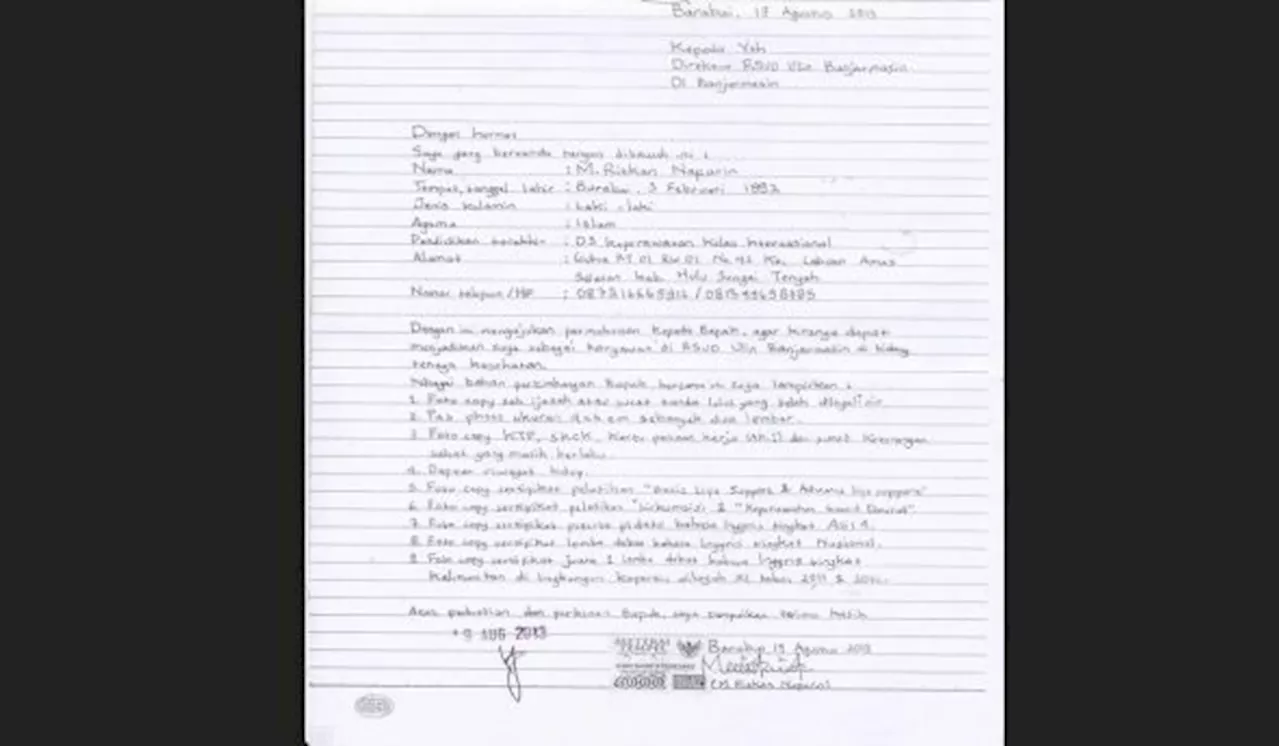 Barabai, Agustus 2013
Kepada Yth
Direktur RSUD Ulin Banjarmasin
Di Banjarmasin
Dengan hormat
Saya yang bertanda tangan dibawah ini :
Nama : M. Riskan Naparin
Tempat, tanggal lahir : Barabai, 3 Februari 1992
Jenis kelamin : Laki-laki
Agama : Islam
Pendidikan terakhir : D3 Keperawatan Kelas Internasional
Alamat : Rt 01 Rw 01 No. Kec. Labuan Amas
Selatan kab. Hulu Sungai Tengah
Nomor telepon/HP :
Dengan ini mengajukan permohonan kepada Bapak, agar kiranya dapat
menjadikan saya sebagai karyawan di RSUD Ulin Banjarmasin di bidang
tenaga kesehatan.
Sebagai bahan pertimbangan Bapak, bersama ini saya lampirkan :
1. Foto copy sah ijazah atau surat tanda lulus yang telah dilegalisir.
2. Pas photo ukuran sebanyak dua lembar.
3. Foto copy KTP, SKCK, Kartu pencari kerja dan surat Keterangan
sehat yang masih berlaku.
4. Daftar riwayat hidup.
5. Foto copy sertifikat pelatihan "Basic Life Support & Advance life support"
6. Foto copy sertifikat pelatihan "Sirkumsisi & "Keperawatan Gawat Darurat".
7. Foto copy sertifikat peserta pidato bahasa Inggris tingkat
8. Foto copy sertifikat lomba debat bahasa Inggris tingkat Nasional.
9. Foto copy sertifikat juara 1 lomba debat bahasa Inggris tingkat
Kalimantan di lingkungan Kopertis wilayah XI tahun 2011 &
Atas perhatian dan perkenan Bapak, saya sampaikan terima kasih
9 AUG 2013
METERAI
TEMPEL
Agustus 2013
(M. Riskan Naparin)